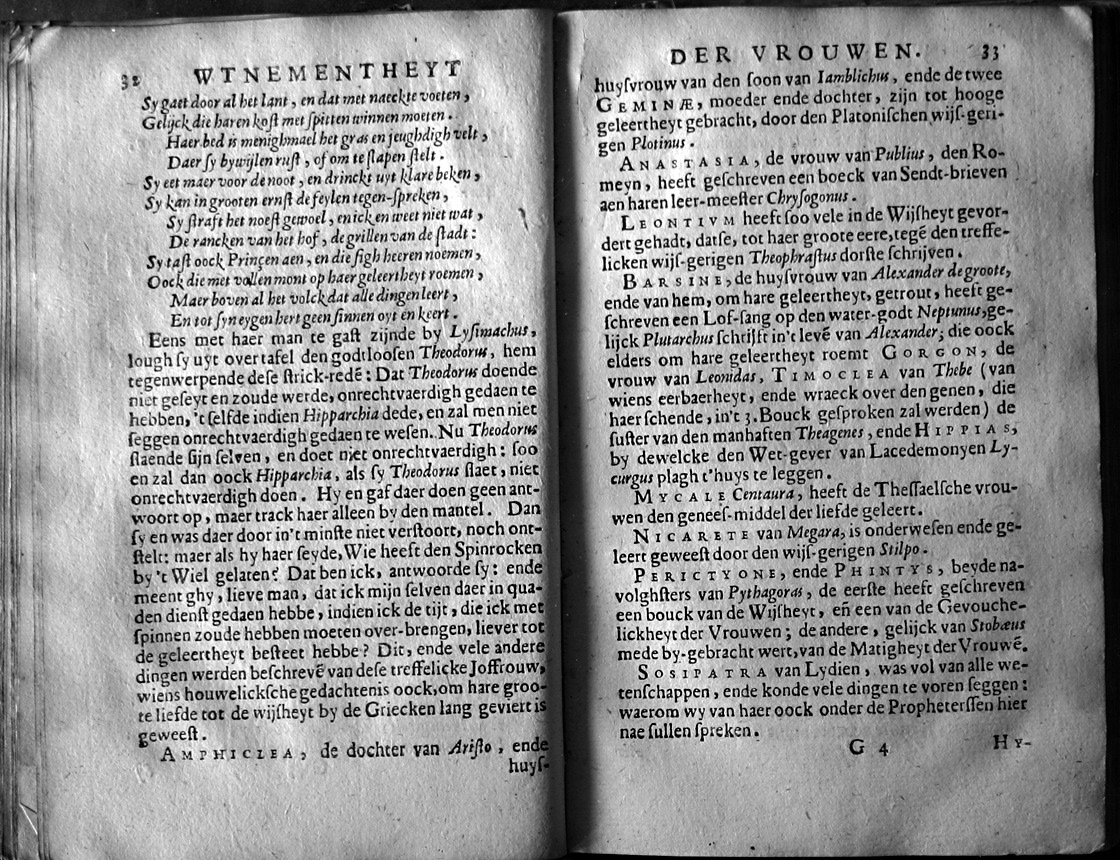 32 WTNEMENTHEYT
Sy gaet door al het lant, en dat met naeckte voeten,
Gelijck die haren kost met spitten winnen moeten.
Haer bed is menighmael het gras en jeughdigh velt,
Daer sy bywijlen rust, of om te slapen stelt.
Sy eet maer voor de noot, en drinckt uyt klare beken,
Sy kan in grooten ernst de feylen tegen-spreken,
Sy straft het noest gewoel, en ick en weet niet wat,
De rancken van het hof, de grillen van de stadt:
Sy tast oock Princen aen, en die sigh heeren noemen,
Oock die met vollen mont op haer geleertheyt roemen,
Maer boven al het volck dat alle dingen leert,
En tot syn eygen hert geen sinnen oyt en keert.
Eens met haer man te gast zijnde by Lysimachus,
lough sy uyt over tafel den godtloosen Theodorus, hem
tegenwerpende dese strick-redē: Dat Theodorus doende
niet geseyt en zoude werde, onrechtvaerdigh gedaen te
hebben, 't selfde indien Hipparchia dede, en zal men niet
seggen onrechtvaerdigh gedaen te wesen. Nu Theodorus
slaende sijn selven, en doet niet onrechtvaerdigh: soo
en zal dan oock Hipparchia, als sy Theodorus slaet, niet
onrechtvaerdigh doen. Hy en gaf daer doen geen ant-
woort op, maer track haer alleen by den mantel. Dan
sy en was daer door in't minste niet verstoort, noch ont-
stelt: maer als hy haer seyde, Wie heeft den Spinrocken
by 't Wiel gelaten? Dat ben ick, antwoorde sy: ende
meent ghy, lieve man, dat ick mijn selven daer in qua-
den dienst gedaen hebbe, indien ick de tijt, die ick met
spinnen zoude hebben moeten over-brengen, liever tot
de geleertheyt besteet hebbe? Dit, ende vele andere
dingen werden beschrevē van dese treffelicke Joffrouw,
wiens houwelicksche gedachtenis oock, om hare groo-
te liefde tot de wijsheyt by de Griecken lang geviert is
geweest.
AMPHICLEA, de dochter van Aristo, ende
huys-
DER VROUWEN. 33
huysvrouw van den soon van Iamblichus, ende de twee
GEMINÆ, moeder ende dochter, zijn tot hooge
geleertheyt gebracht, door den Platonischen wijs-geri-
gen Plotinus.
ANASTASIA, de vrouw van Publius, den Ro-
meyn, heeft geschreven een boeck van Sendt-brieven
aen haren leer-meester Chrysogonus.
LEONTIVM heeft soo vele in de Wijsheyt gevor-
dert gehadt, datse, tot haer groote eere, tegē den treffe-
licken wijs-gerigen Theophrastus dorste schrijven.
BARSINE, de huysvrouw van Alexander de groote,
ende van hem, om hare geleertheyt, getrout, heeft ge-
schreven een Lof-sang op den water-godt Neptunus, ge-
lijck Plutarchus schrijft in't levē van Alexander; die oock
elders om hare geleertheyt roemt GORGON, de
vrouw van Leonidas, TIMOCLEA van Thebe (van
wiens eerbaerheyt, ende wraeck over den genen, die
haer schende, in't 3. Bouck gesproken zal werden) de
suster van den manhaften Theagenes, ende HIPPIAS,
by dewelcke den Wet-gever van Lacedemonyen Ly-
curgus plagh t'huys te leggen.
MYCALE Centaura, heeft de Thessaelsche vrou-
wen den genees-middel der liefde geleert.
NICARETE van Megara, is onderwesen ende ge-
leert geweest door den wijs-gerigen Stilpo.
PERICTYONE, ende PHINTYS, beyde na-
volghsters van Pythagoras, de eerste heeft geschreven
een bouck van de Wijsheyt, eñ een van de Gevouche-
lickheyt der Vrouwen; de andere, gelijck van Stobæus
mede by-gebracht wert, van de Matigheyt der Vrouwē.
SOSIPATRA van Lydien, was vol van alle we-
tenschappen, ende konde vele dingen te voren seggen:
waerom wy van haer oock onder de Propheterssen hier
nae sullen spreken.
G 4 HY-